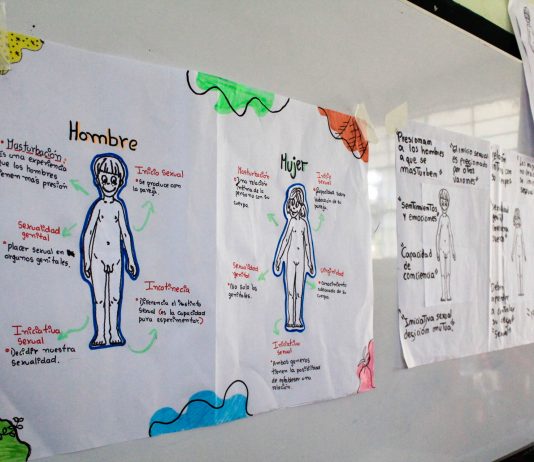 Hombre
• Masturbación:
Es una experiencia
que los hombres
tienen más presión
Inicio sexual
• Se produce com
la pareja.
Sexualidad
genital
• Placer sexual en
organos genitales.
Incotinecia
• Diferencia el instinto
sexual (es la capacidad
para experimentar.)
Iniciativa
sexual
• Decidir nuestra
sexualidad.
Mujer
Masturbación
• Una relación
íntima de la
persona con su
cuerpo.
Inicio
sexual
• Capacidad sobre
su pareja.
Sexualidad
genital
• No solo los
genitales.
Virginidad
• Conocimiento
adecuado de su
cuerpo.
Iniciativa
sexual
• Ambos generos
tienen la posibilidad
de establecer una
relación.
Presionam
a los hombres
a que se
masturben
• Sentimientos
y emociones
• Capacidad
de
conciencia
• Iniciativa sexual
decisión mutua
• El inicio sexual
es presionado
por otras
varones